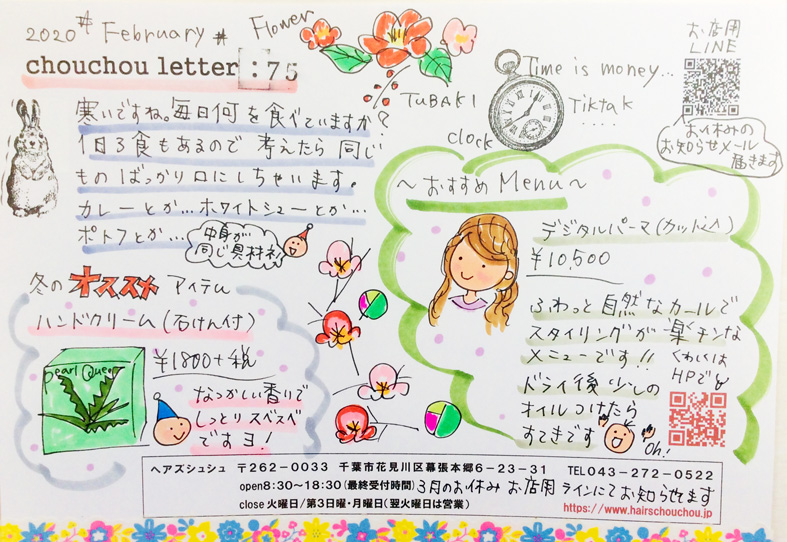 2020 # February #
Flower
chouchou letter :75
TUBAKI
clock
Time is money...
Tiktak
.....
お店用
LINE
お休みの
お知らせメール
届きます
寒いですね。毎日何を食べていますか?
1日3食もあるので 考えたら 同じ
ものばっかり口にしちゃいます。
カレーとか…ホワイトシューとか…
ポトフとか…
中身が
同じ具材ネ!
冬の オススメ アイテム
ハンドクリーム(石けん付)
¥1800+税
pearl Queen
なつかしい香りで
しっとり スベスベ
ですヨ!
~おすすめ Menu~
デジタルパーマ(カット込)
¥10,500
ふわっと 自然なカールで
スタイリングが 楽チンな
メニューです!!
くわしくは
HPで
ドライ後 少しの
オイルつけたら
すてきです
Oh!
ヘアズシュシュ 〒262-0033 千葉市花見川区幕張本郷6-23-31 TEL043-272-0522
open8:30~18:30(最終受付時間) 3月のお休み お店用 ラインにてお知らせます
close 火曜日/第3日曜・月曜日(翌火曜日は営業) https://www.hairschouchou.jp